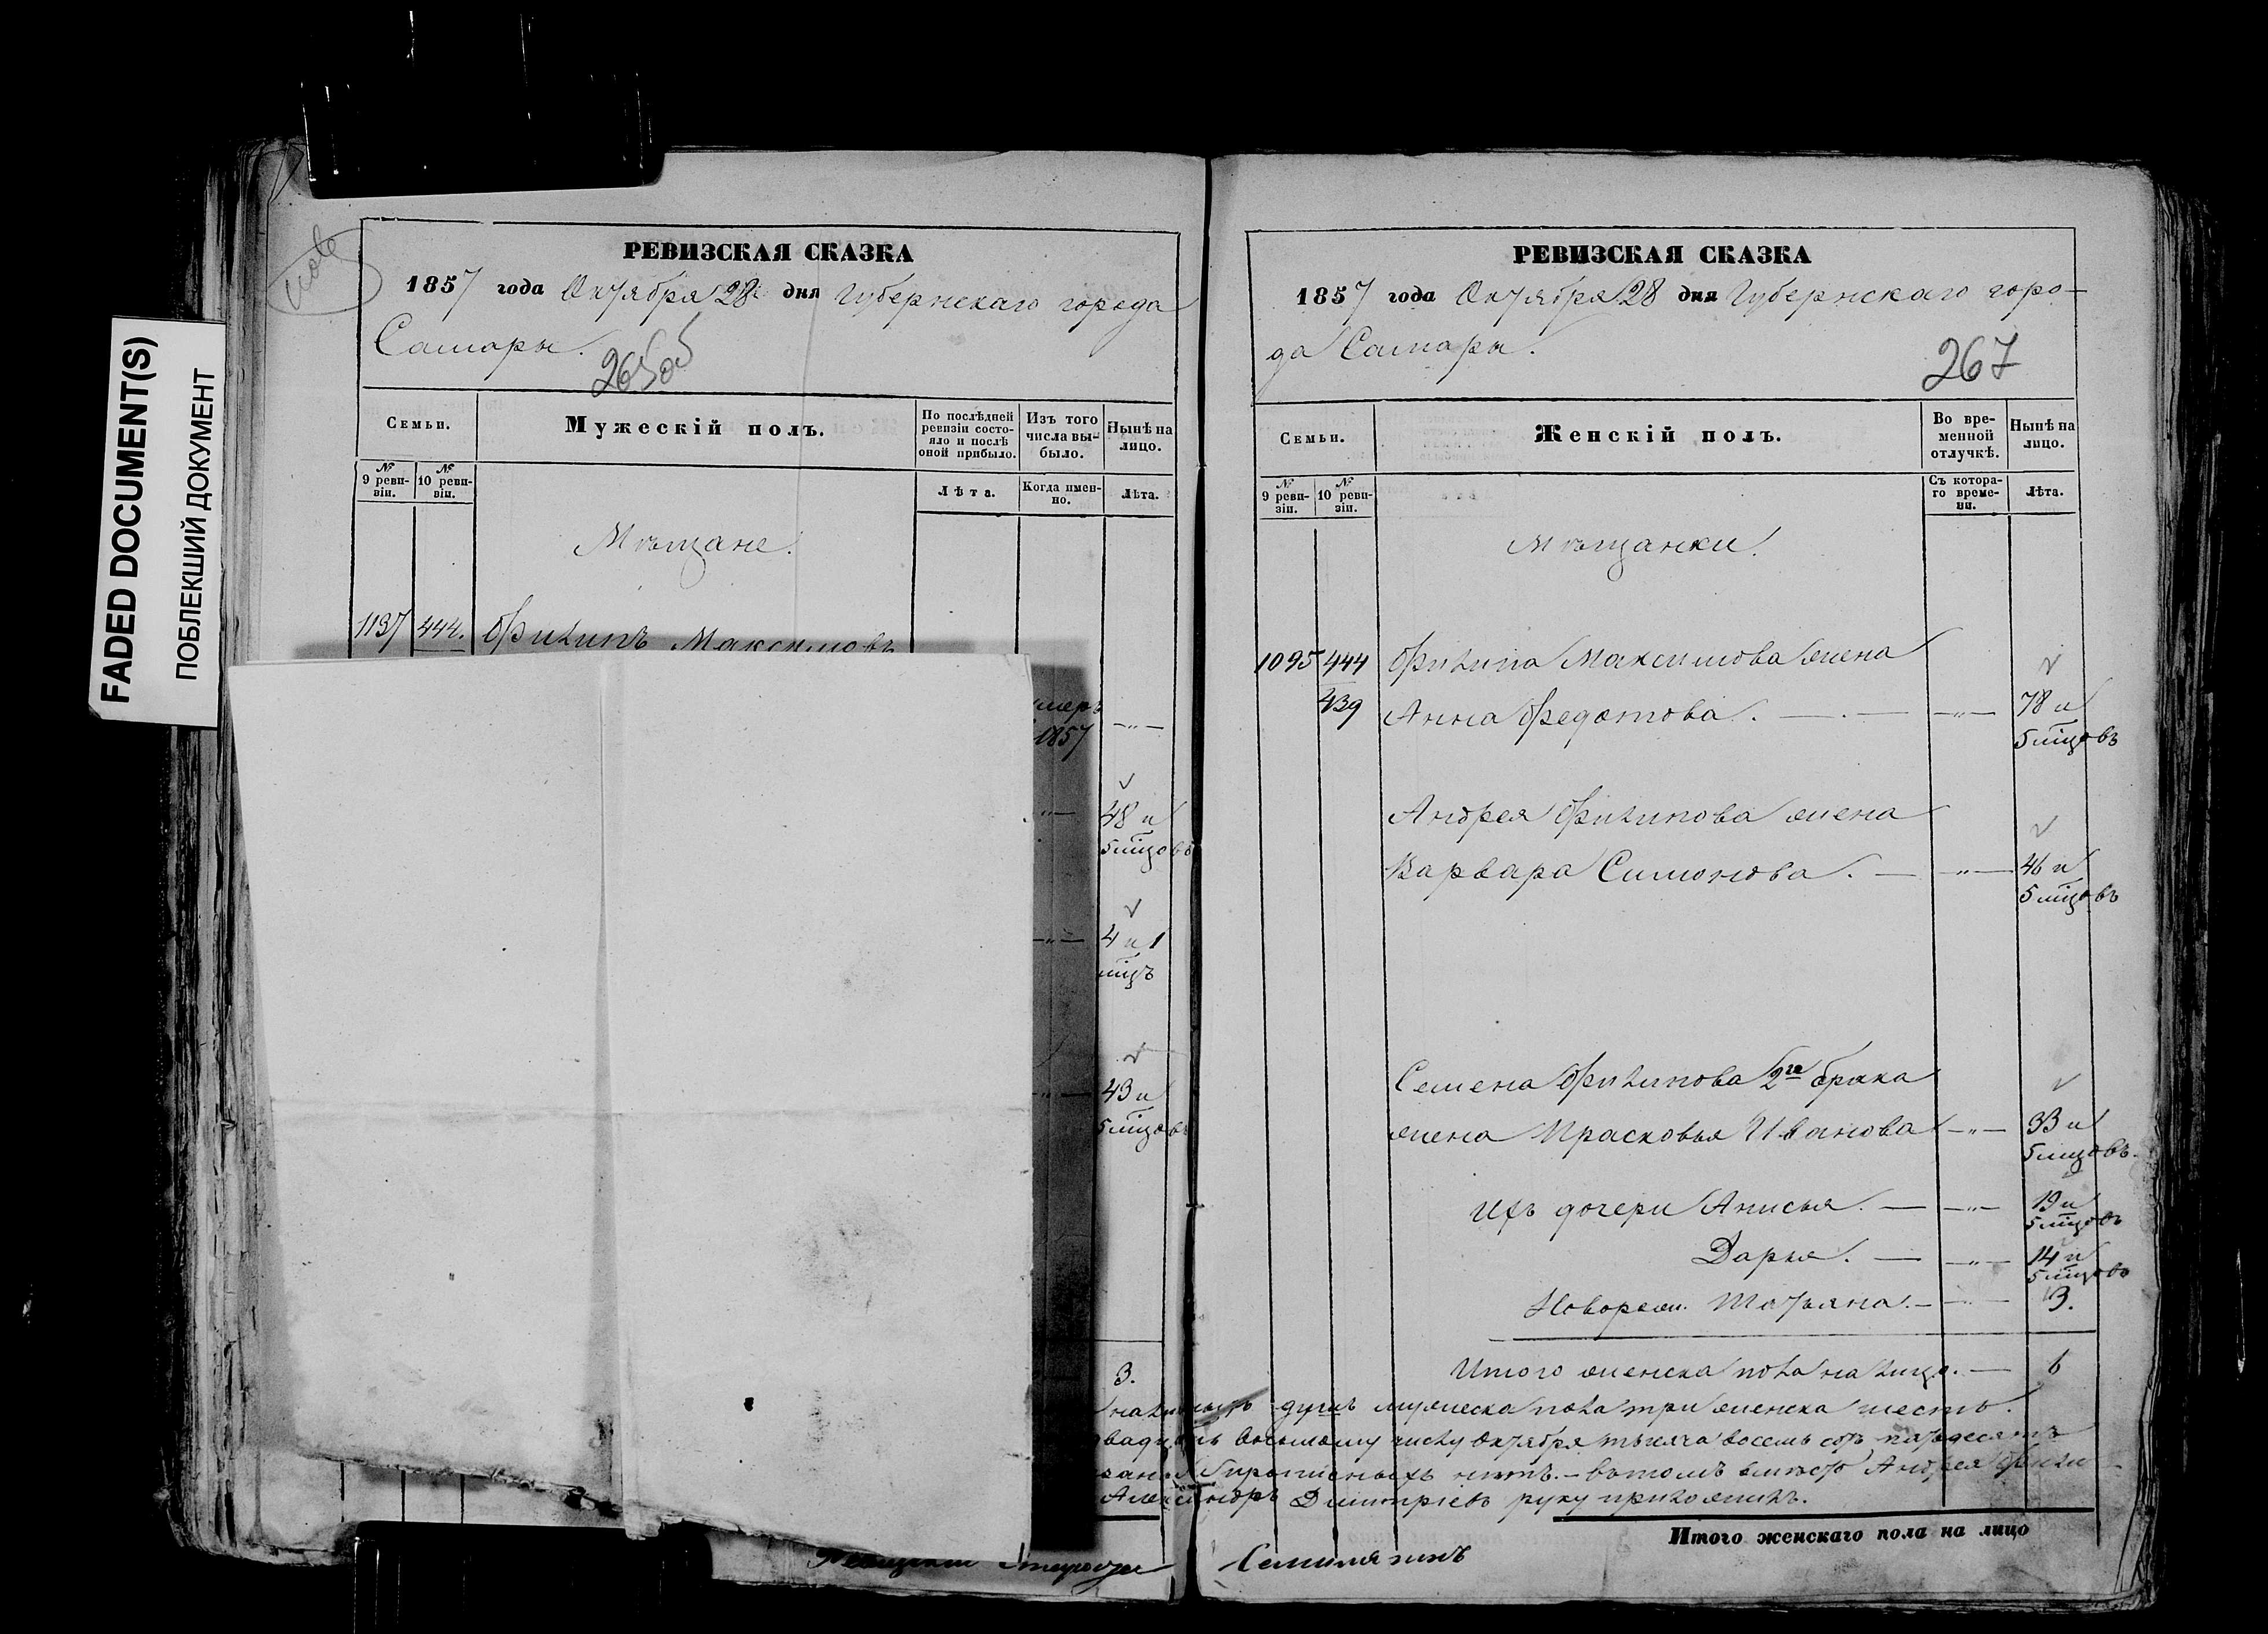 FADED DOCUMENT(S)
ПОБЛЕКШИЙ ДОКУМЕНТ
РЕВИЗСКАЯ СКАЗКА
1857 года Октября 28 дня Губернскаго города
Самары.
Семьи.
Мужескій полъ.
По послѣдней ревизіи состояло и послѣ оной прибыло.
Изъ того числа выбыло.
Нынѣ на лицо.
№ 9 ревизіи.
№ 10 ревизіи.
Лѣта.
Когда именно.
Лѣта.
Мѣщане.
1137 444. Филипъ Максимовъ
умеръ
1857 —„—
48 и
5 мцовъ
4 и 1
мцъ
43 и
5 мцовъ
3.
РЕВИЗСКАЯ СКАЗКА
1857 года Октября 28 дня Губернскаго горо-
да Самары.
267
Семьи.
Женскій полъ.
Во временной отлучкѣ.
Нынѣ на лицо.
№ 9 ревизіи.
№ 10 ревизіи.
Съ котораго времени.
Лѣта.
Мѣщанки.
1095 444 Филипа Максимова жена
439 Анна Федотова. — —„— 78 и
5 мцовъ
Андрея Филипова жена
Варвара Симонова. — —„— 46 и
5 мцовъ
Семена Филипова 2го брака
жена Прасковья Иванова —„— 33 и
5 мцовъ.
Ихъ дочери Анисья. — —„— 19 и
5 мцовъ
Дарья. — —„— 14 и
5 мцовъ
Новорож. Татьяна. — 3.
Итого женска пола на лицо. — 6
душъ мужеска пола три женска шесть.
восьмому числу Октября тысяча восемь сотъ пятьдесятъ
прописныхъ нѣтъ. — Вътомъ вмѣсто Андрея Фили
Александръ Дмитріевъ руку приложилъ.
Итого женскаго пола на лицо